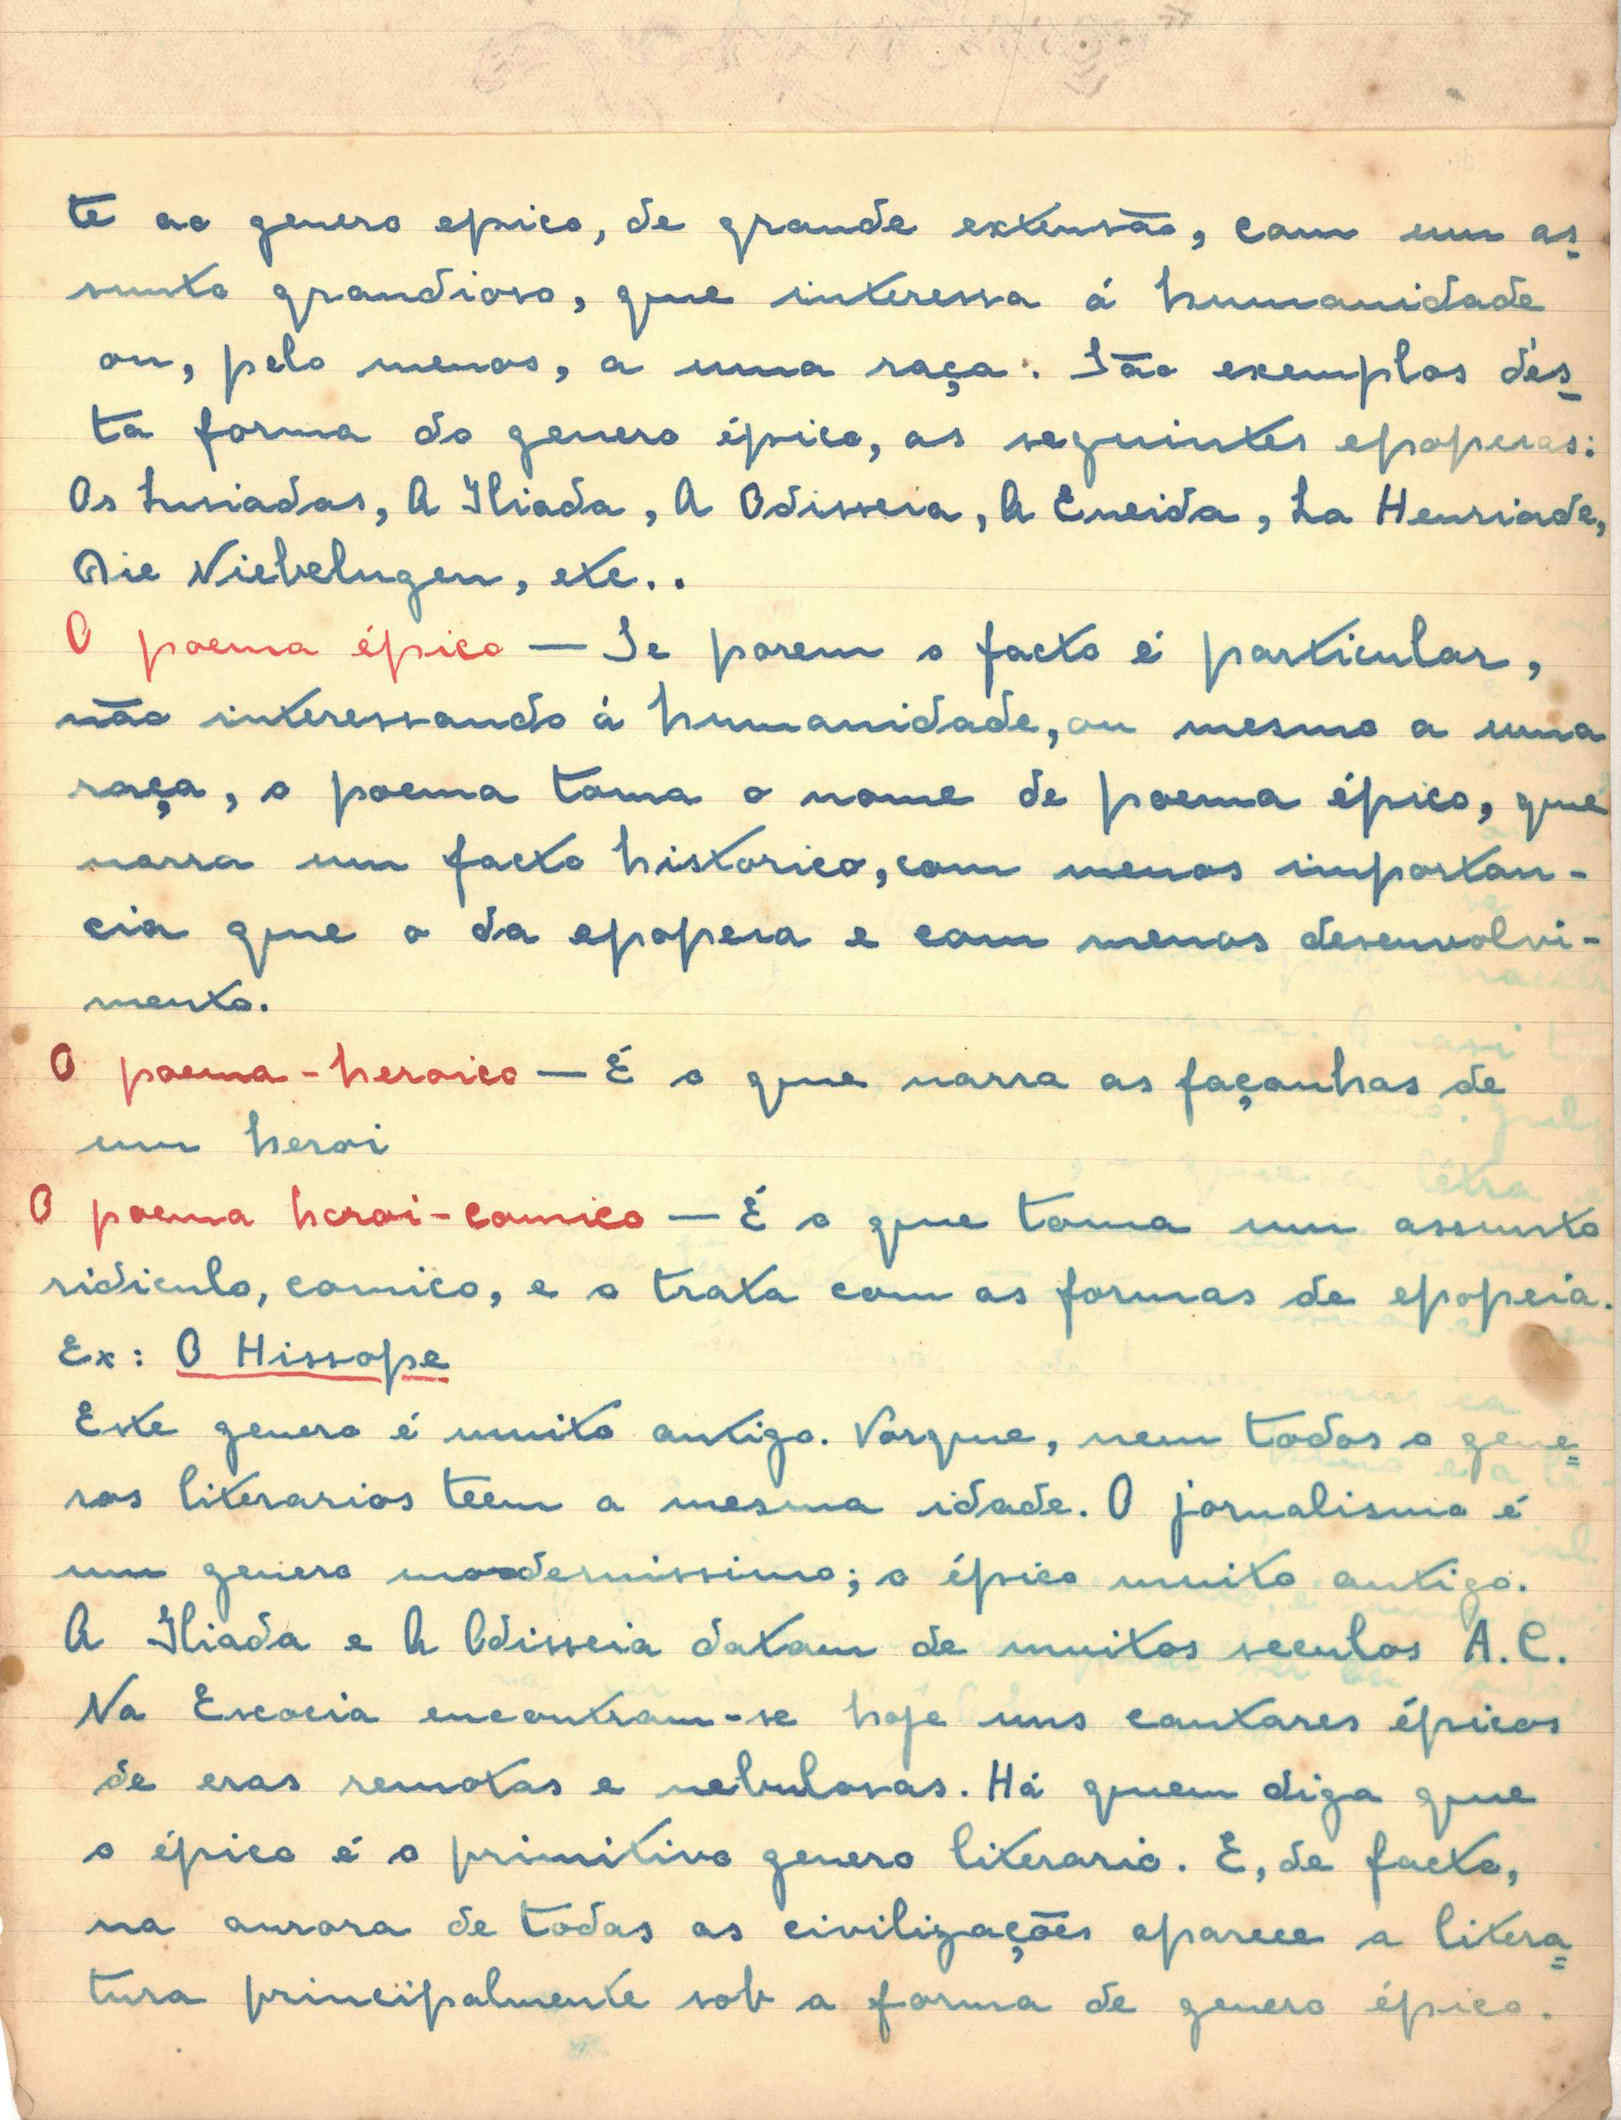 te ao genero epico, de grande extensão, com um as-
sunto grandioso, que interessa á humanidade
ou, pelo menos, a uma raça. São exemplos dés-
ta forma do genero épico, as seguintes epopeias:
Os Lusiadas, A Iliada, A Odisseia, A Eneida, La Henriade,
Die Niebelugen, etc..
O poema épico — Se porem o facto é particular,
não interessando á humanidade, ou mesmo a uma
raça, o poema toma o nome de poema épico, que
narra um facto historico, com menos importan-
cia que o da epopeia e com menos desenvolvi-
mento.
O poema-heroico — É o que narra as façanhas de
um heroi
O poema heroi-comico — É o que toma um assunto
ridiculo, comico, e o trata com as formas de epopeia.
Ex: O Hissope
Este genero é muito antigo. Porque, nem todos o gene=
ros literarios teem a mesma idade. O jornalismo é
um genero modernissimo; o épico muito antigo.
A Iliada e A Odisseia datam de muitos seculos A.C.
Na Escocia encontram-se hoje uns cantares épicos
de eras remotas e nebulosas. Há quem diga que
o épico é o primitivo genero literario. E, de facto,
na aurora de todas as civilizações aparece a litera=
tura principalmente sob a forma de genero épico.